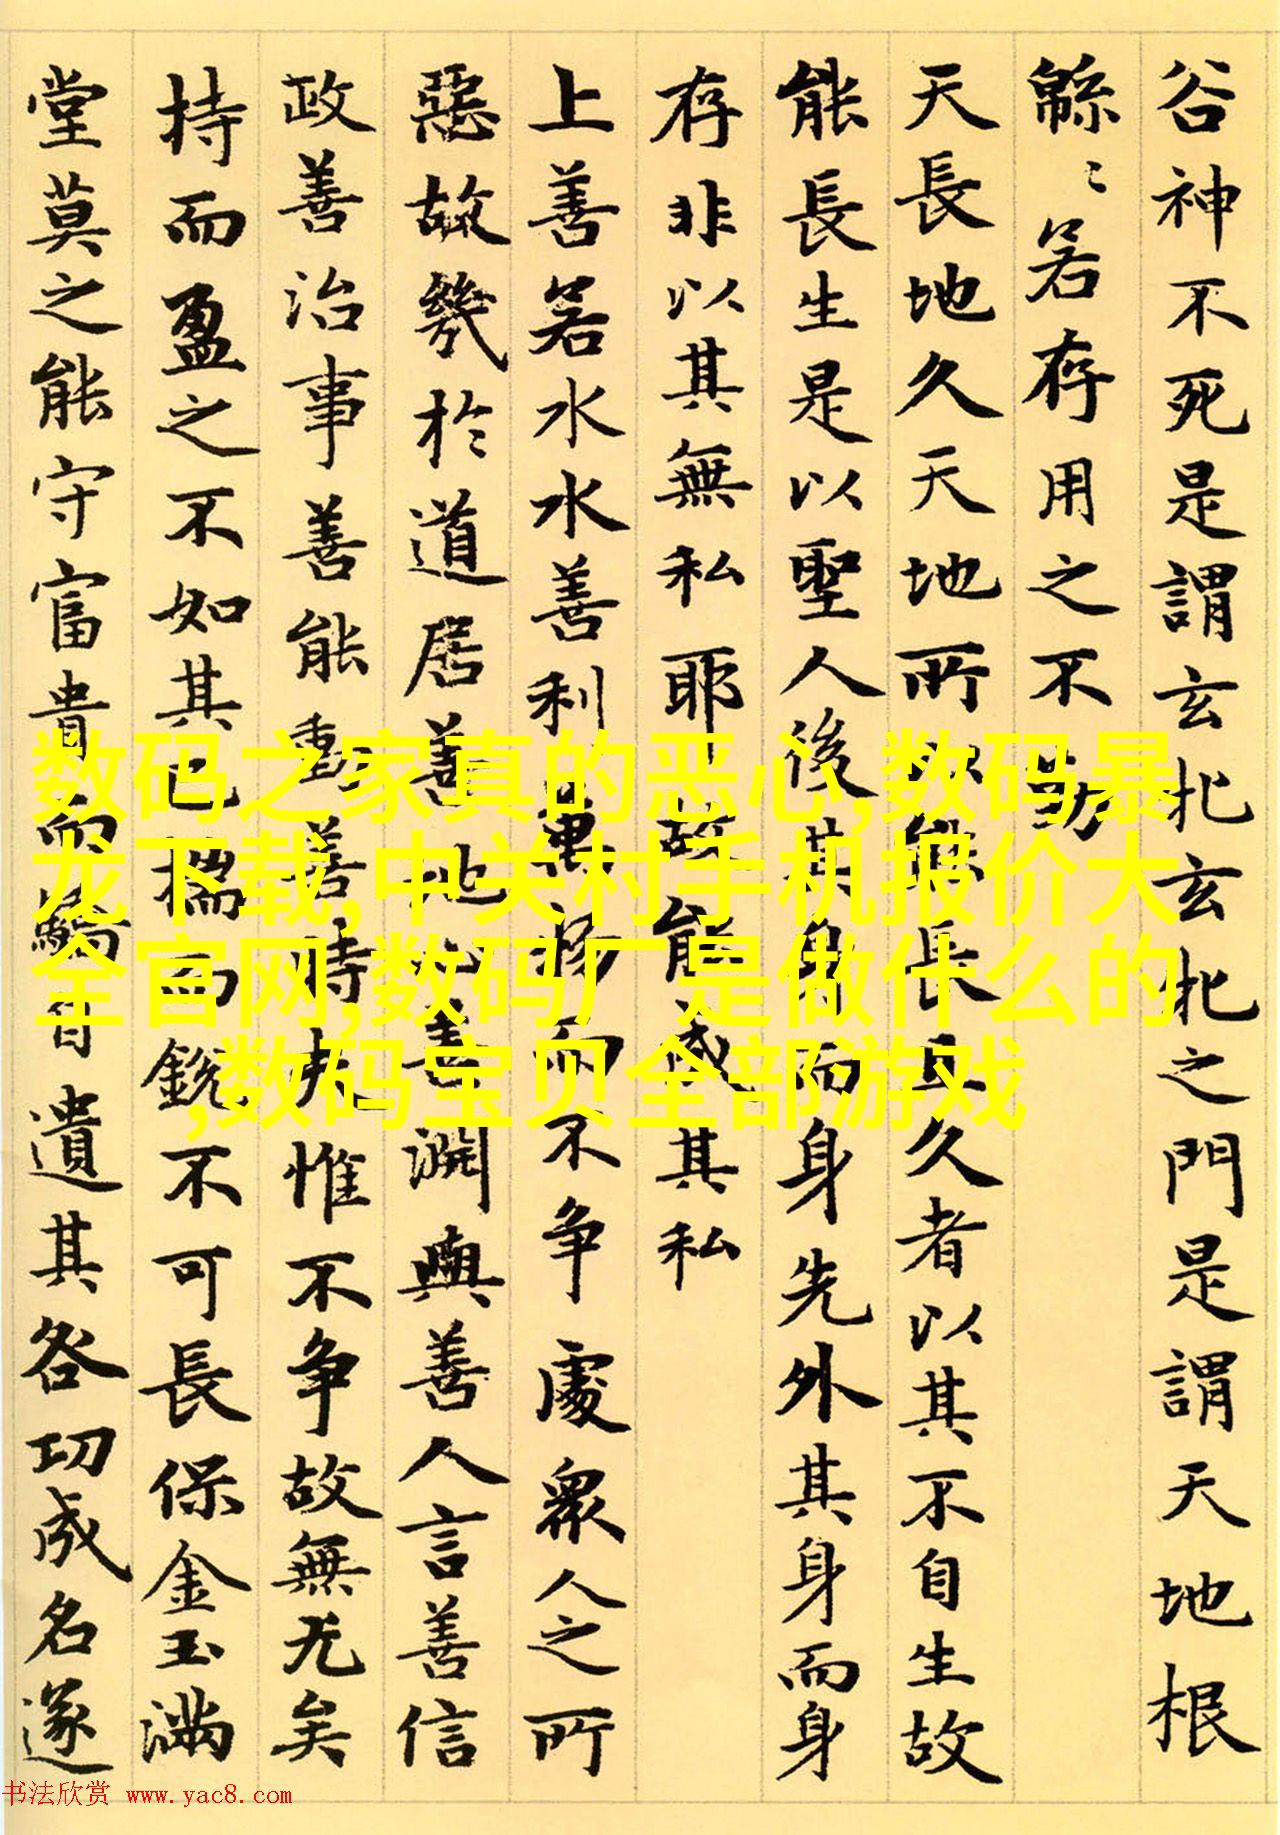 谷神不死是謂玄牝玄牝之門是謂天地根
緜〻若存用之不勤
天長地久天地所以能長且久者以其不自生故
能長生是以聖人後其身而身先外其身而身
存非以其無私耶故能成其私
上善若水水善利萬物而不争處衆人之所
惡故幾於道居善地心善渊與善人言善信
政善治事善能動善時夫惟不争故無尤矣
持而盈之不如其已揣而銳不可長保金玉满
堂莫之能守富貴而驕自遺其咎功成名遂
数码之家真的恶心,数码暴
龙下载,中关村手机报价大
全官网,数码厂是做什么的
,数码宝贝全部游戏
书法欣赏 www.yac8.com